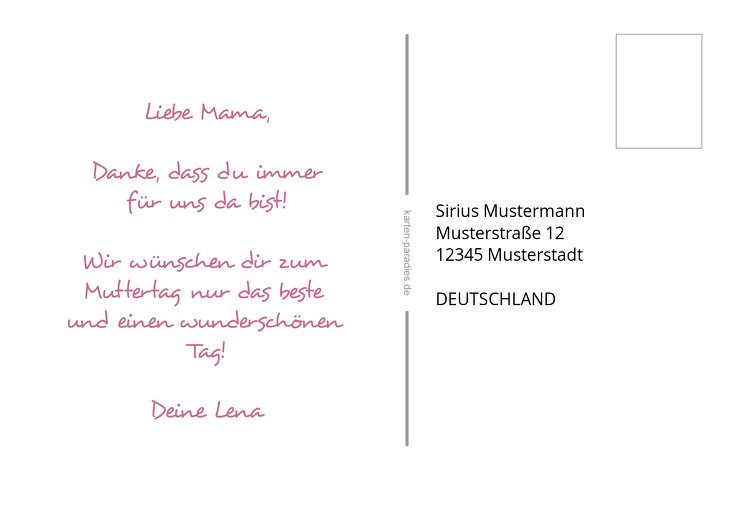 Liebe Mama,
Danke, dass du immer
für uns da bist!
Wir wünschen dir zum
Muttertag nur das beste
und einen wunderschönen
Tag!
Deine Lena
karten-paradies.de
Sirius Mustermann
Musterstraße 12
12345 Musterstadt
DEUTSCHLAND